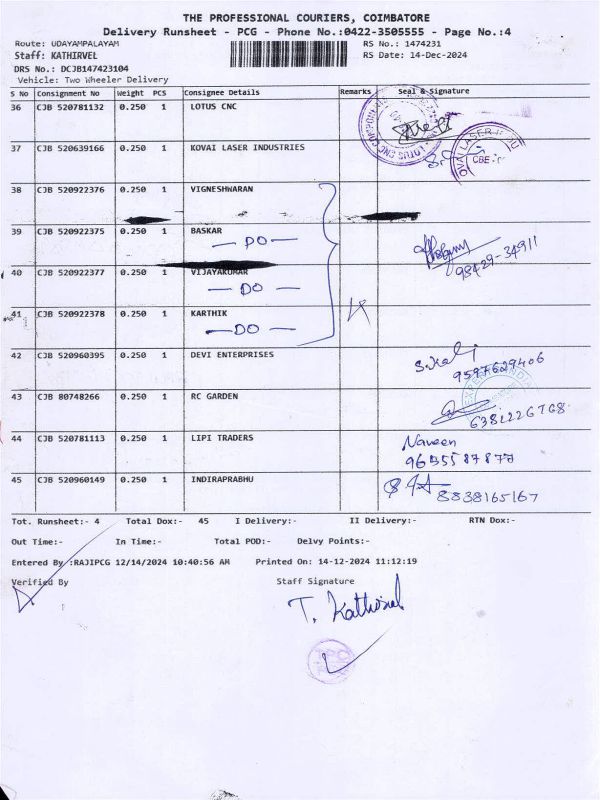 THE PROFESSIONAL COURIERS, COIMBATORE
Delivery Runsheet - PCG - Phone No.:0422-3505555 - Page No.:4
Route: UDAYAMPALAYAM
RS No.: 1474231
Staff: KATHIRVEL
RS Date: 14-Dec-2024
DRS No.: DCJB147423104
Vehicle: Two Wheeler Delivery
S No Consignment No Weight PCS Consignee Details Remarks Seal & Signature
36 CJB 520781132 0.250 1 LOTUS CNC
37 CJB 520639166 0.250 1 KOVAI LASER INDUSTRIES
CBE
38 CJB 520922376 0.250 1 VIGNESHWARAN
39 CJB 520922375 0.250 1 BASKAR
— DO —
98429-34911
40 CJB 520922377 0.250 1 VIJAYAKUMAR
— DO —
41 CJB 520922378 0.250 1 KARTHIK
— DO —
42 CJB 520960395 0.250 1 DEVI ENTERPRISES
9597629406
43 CJB 80748266 0.250 1 RC GARDEN
6381226768
44 CJB 520781113 0.250 1 LIPI TRADERS
Naveen
9655587877
45 CJB 520960149 0.250 1 INDIRAPRABHU
8838165167
Tot. Runsheet:- 4 Total Dox:- 45 I Delivery:- II Delivery:- RTN Dox:-
Out Time:- In Time:- Total POD:- Delvy Points:-
Entered By :RAJIPCG 12/14/2024 10:40:56 AM Printed On: 14-12-2024 11:12:19
Verified By Staff Signature